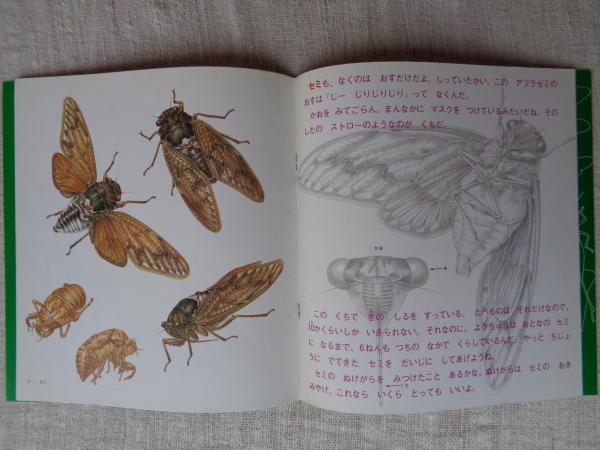 セミも、なくのは おすだけだよ。しっていたかい。この アブラゼミの
おすは「じー じりじりじり」って なくんだ。
かおを みてごらん。まんなかに マスクを つけているみたいだね。その
したの ストローのようなのが くちだ。
この くちで きの しるを すっている。 たべものは それだけなので、
10かくらいしか いきられない。それなのに、ようちゅうは おとなの セミ
に なるまで、6ねんも つちの なかで くらしているんだ。やっと ちじょ
うに でてきた セミを だいじに してあげようね。
セミの ぬけがらを みつけたこと あるかな。ぬけがらは セミの おき
みやげ。これなら いくら とっても いいよ。